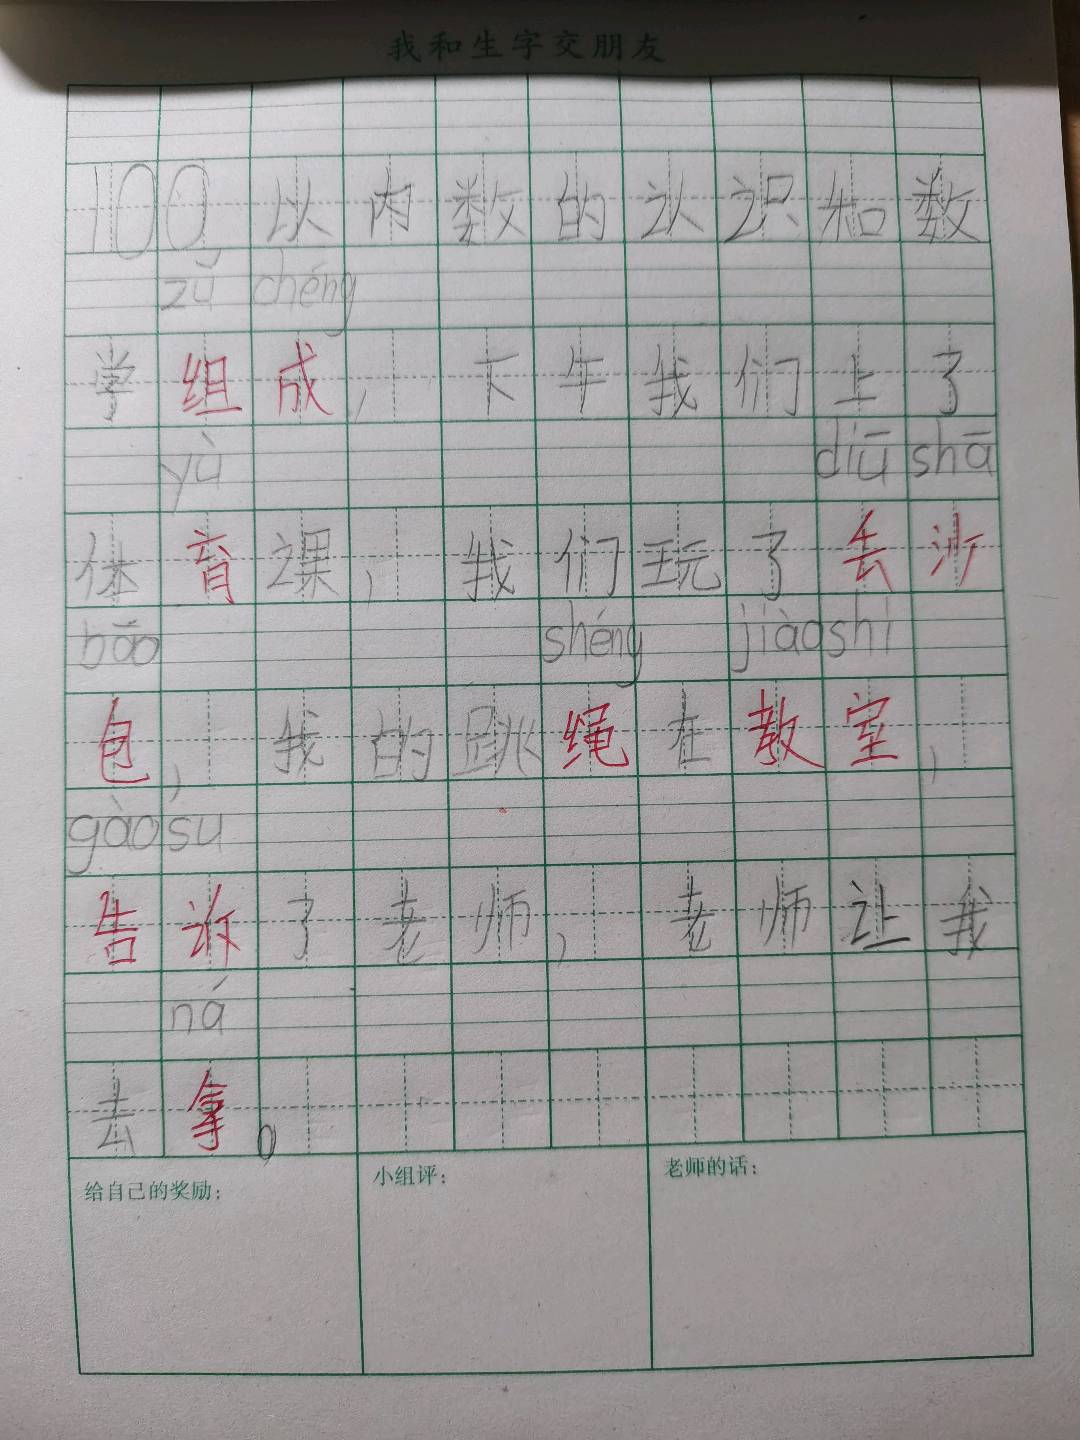 我和生字交朋友
100以内数的认识和数
zǔ chéng
学组成，下午我们上了
yù diū shā
体育课，我们玩了丢沙
bāo shéng jiào shi
包，我的跳绳在教室，
gào su
告诉了老师，老师让我
ná
去拿。
给自己的奖励：
小组评：
老师的话：